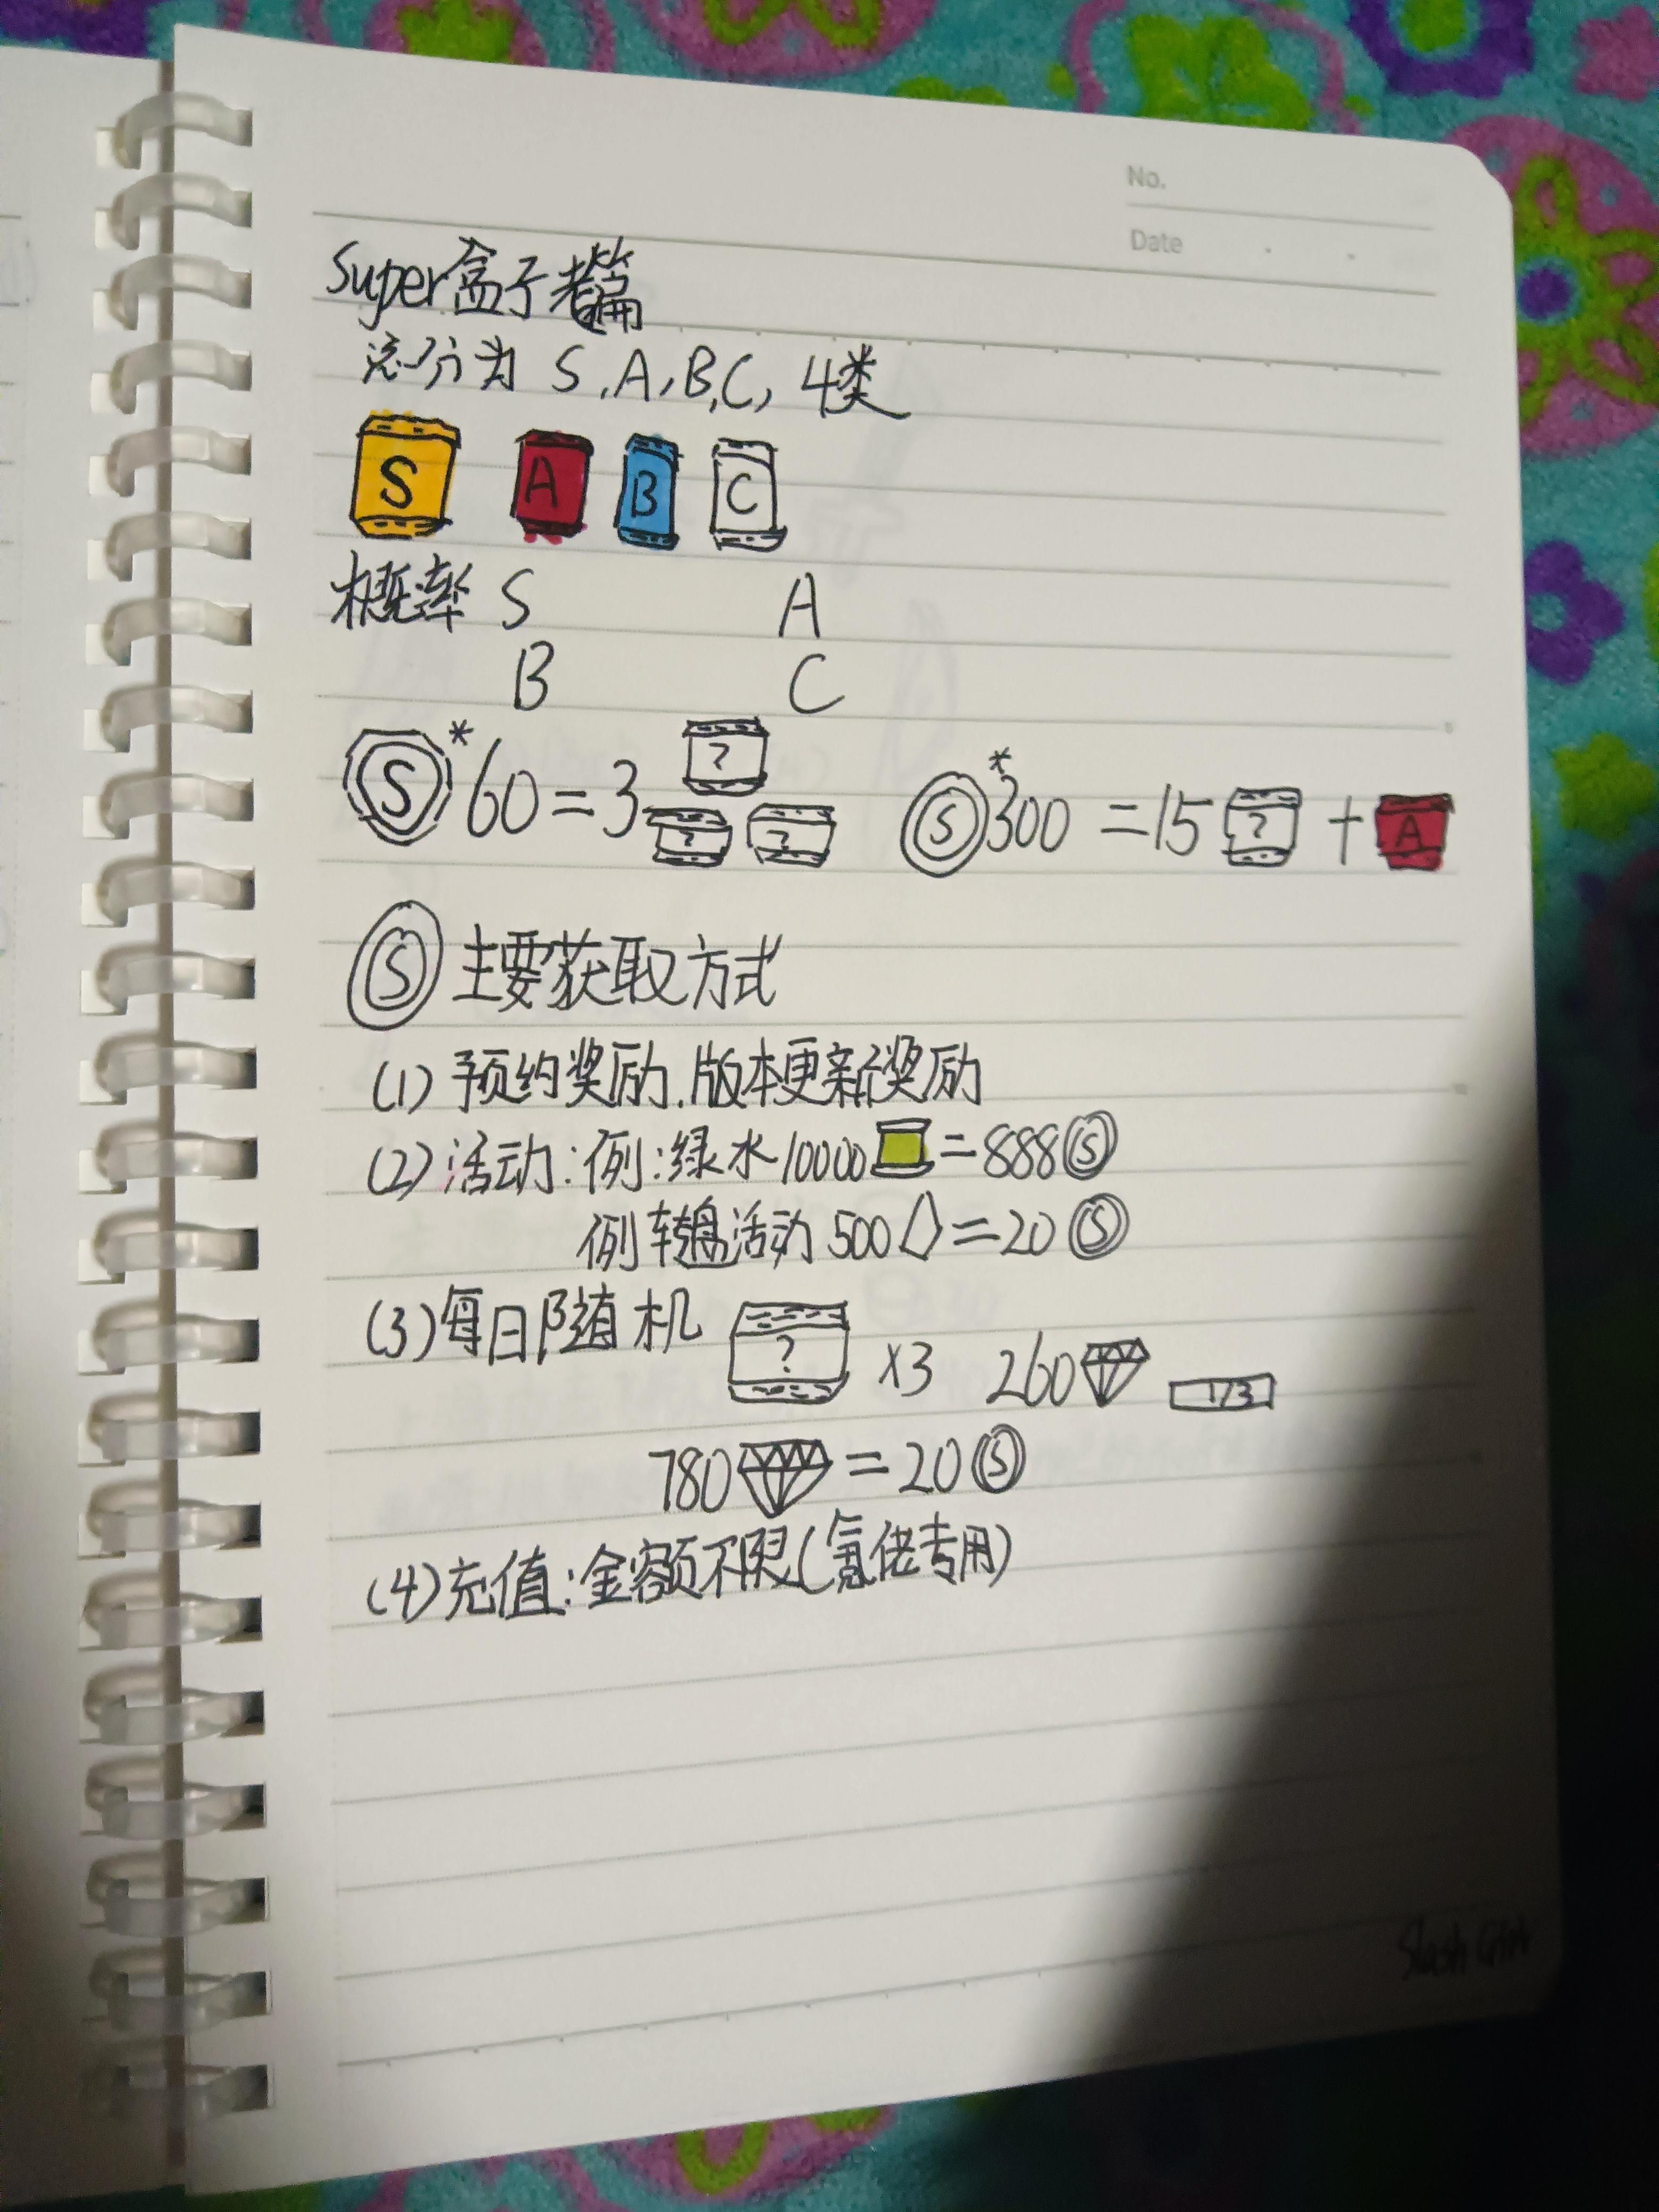 No.
Date
Super盒子篇
总分为 S,A,B,C, 4类
S A B C
概率 S A
B C
S*60=3 ? ? ? S*300=15 ? + A
S 主要获取方式
(1) 预约奖励.版本更新奖励
(2) 活动:例:绿水10000=888S
例转盘活动500=20S
(3)每日随机 ? x3 260 1/3
780=20S
(4)充值:金额不限(氪佬专用)